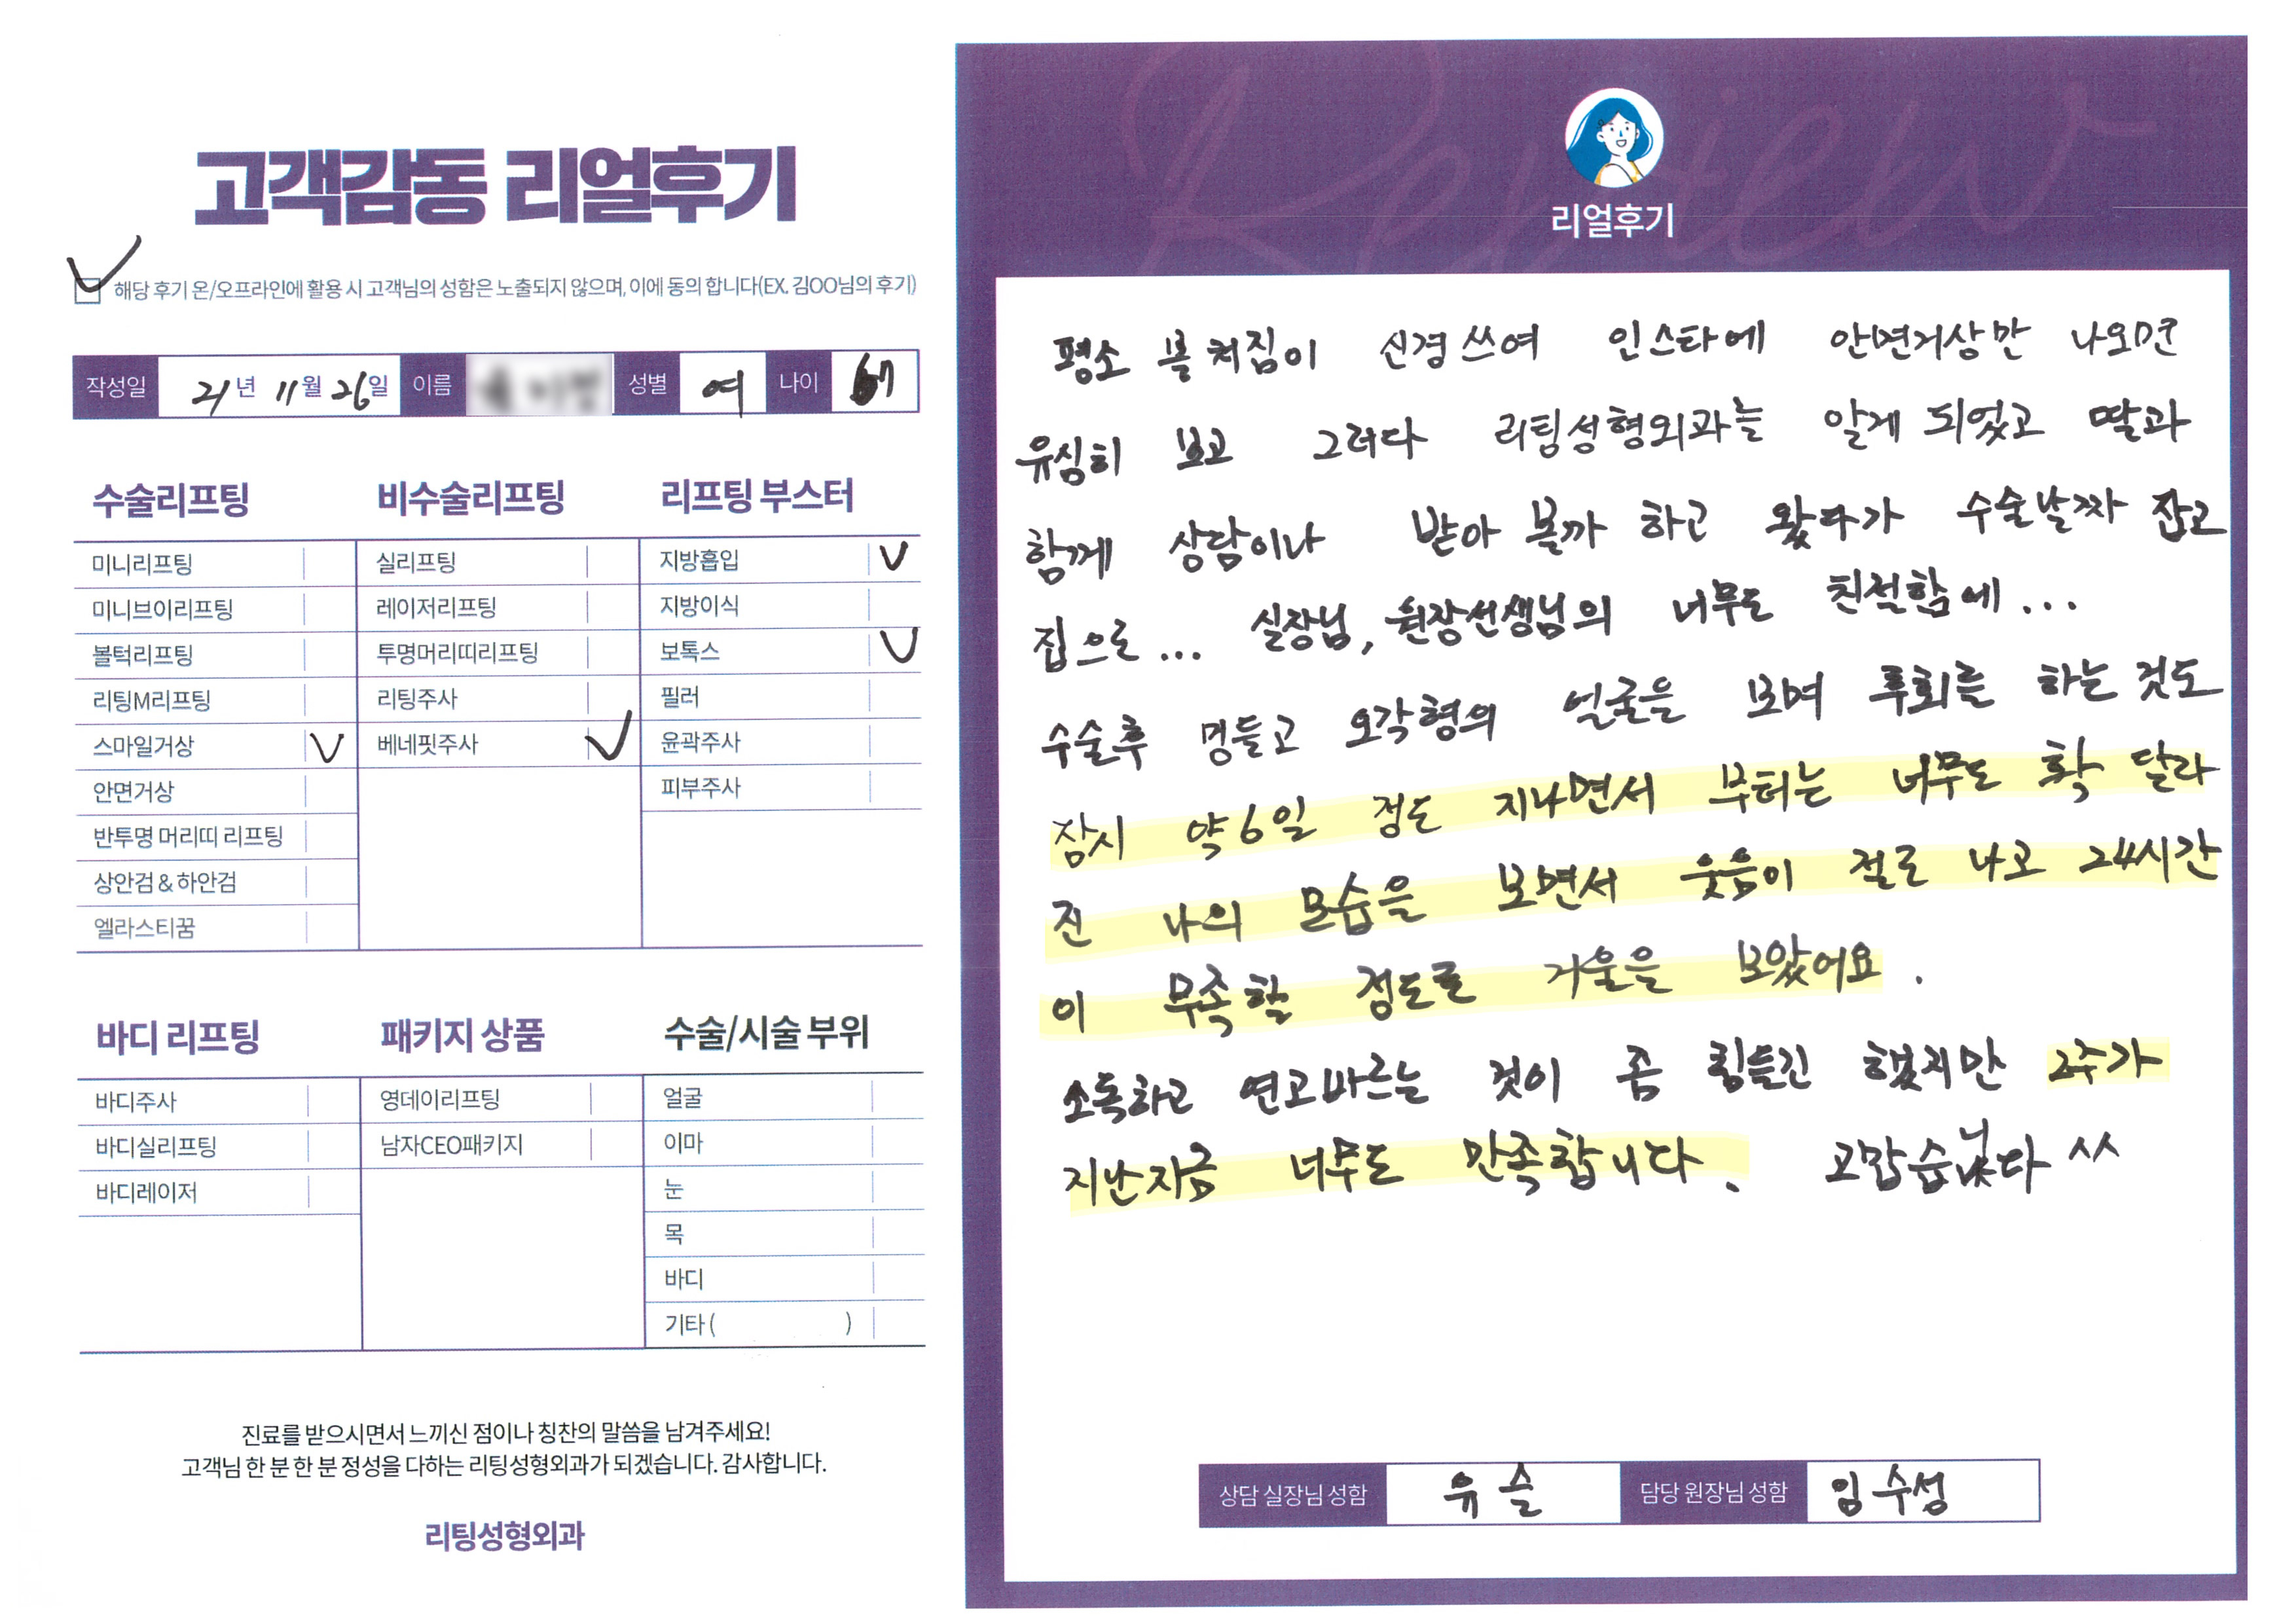 고객감동 리얼후기
해당 후기 온/오프라인에 활용 시 고객님의 성함은 노출되지 않으며, 이에 동의 합니다(EX. 김OO님의 후기)
작성일 21년 11월 26일 이름 성별 여 나이
수술리프팅
미니리프팅
미니브이리프팅
볼턱리프팅
리팅M리프팅
스마일거상 V
안면거상
반투명 머리띠 리프팅
상안검 & 하안검
엘라스티꿈
비수술리프팅
실리프팅
레이저리프팅
투명머리띠리프팅
리팅주사
베네핏주사 V
리프팅 부스터
지방흡입 V
지방이식
보톡스 V
필러
윤곽주사
피부주사
바디 리프팅
바디주사
바디실리프팅
바디레이저
패키지 상품
영데이리프팅
남자CEO패키지
수술/시술 부위
얼굴
이마
눈
목
바디
기타 ( )
진료를 받으시면서 느끼신 점이나 칭찬의 말씀을 남겨주세요!
고객님 한 분 한 분 정성을 다하는 리팅성형외과가 되겠습니다. 감사합니다.
리팅성형외과
Review
리얼후기
평소 볼 처짐이 신경 쓰여 인스타에 안면거상만 나오면
유심히 보고 그러다 리팅성형외과를 알게 되었고 딸과
함께 상담이나 받아 볼까 하고 왔다가 수술날짜 잡고
집으로... 실장님, 원장선생님의 너무도 친절함에...
수술후 멍들고 오각형의 얼굴을 보며 후회를 하는 것도
잠시 약 6일 정도 지나면서 부터는 너무도 확 달라
진 나의 모습을 보면서 웃음이 절로 나고 24시간
이 부족할 정도로 거울을 보았어요.
소독하고 연고바르는 것이 좀 힘들긴 했지만 2주가
지난지금 너무도 만족합니다. 고맙습니다 ^^
상담 실장님 성함 유슬 담당 원장님 성함 임수성